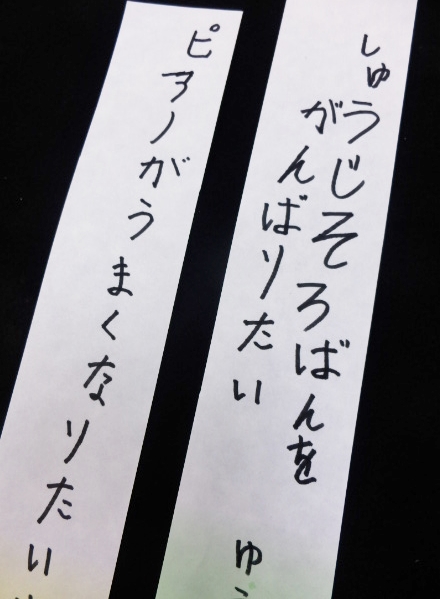 しゅうじそろばんを
がんばりたい
ゆ
ピアノがうまくなりたい